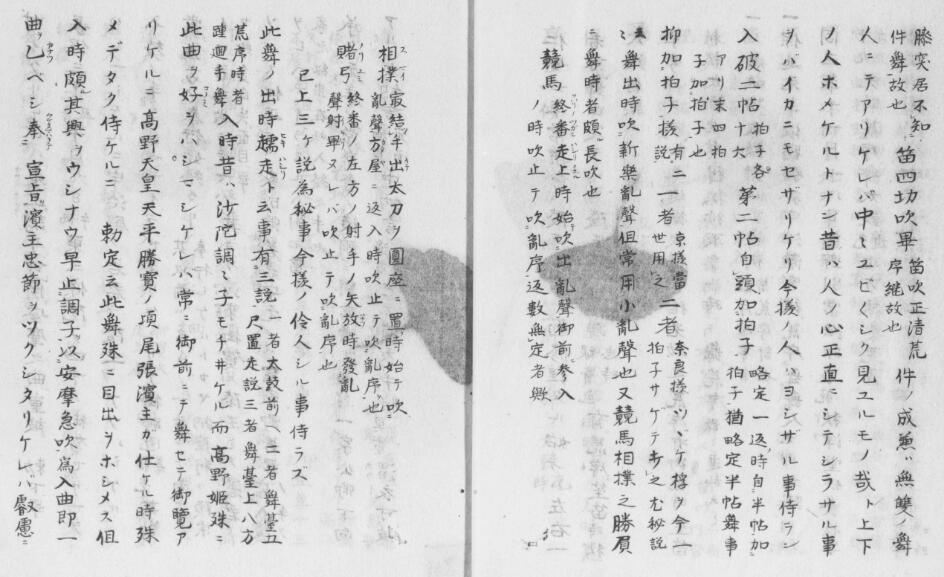 膝突居不知 笛四功吹畢 笛吹正清荒 件ノ成兼ハ無雙ノ舞
件舞故也 序継故也
人ニテアリケレバ中〻ユビヽシク見ユルモノ哉ト上下
ノ人ホメケルトナン昔ハ人ノ心正直ニシテシラサル事
ヲバイカニモセザリケリ今様ノ人ハヨシサル事侍ラン
入破二帖 拍子各十六 第二帖自頭加拍子 略定一返時自半帖加拍子猶略定半帖舞事
アリ末四拍
子加拍也
抑加拍子様有二説 一者世用之 京様當 二者 奈良様ツヾケ桴ヲ今一拍子サケテ打之尤秘説
舞出時吹新樂亂聲但常用小亂聲也又競馬相撲之勝負
舞時者頗長吹也
競馬 終番走上時始吹出亂聲御前参入
ノ時吹止テ吹亂序返數無定者歟
相撲 寂結手出太刀ヲ圓座ニ置時始テ吹
亂聲方屋ニ返入時吹止テ吹亂序也
賭弓 終番ノ左方ノ射手ノ矢放時發亂
聲射畢ヌレバ吹止テ吹亂序也
已上三ケ説為秘事今様ノ伶人シル事侍ラズ
此舞ノ出時趨走ト云事有三説 一者太鼓前ヘ二者舞臺五尺置走説三者舞臺上八方
荒序時者
踵廻手舞 入時昔ハ沙陀調〻子モチ井ケル而高野姫殊ニ
此曲ヲ好ヲハシマシケレバ常ニ御前ニテ舞セテ御覽ア
リケルニ高野天皇天平勝寳ノ頃尾張濱主カ仕ケル時殊
メデタク侍ケルニ 勅定云此舞殊ニ目出ヲホシメス但
入時頗其興ヲウシナウ早止調子以安摩急吹為入曲即一
曲乙ベシ奉 宣旨濱主忠節ヲツクシタリケレバ叡慮ニ